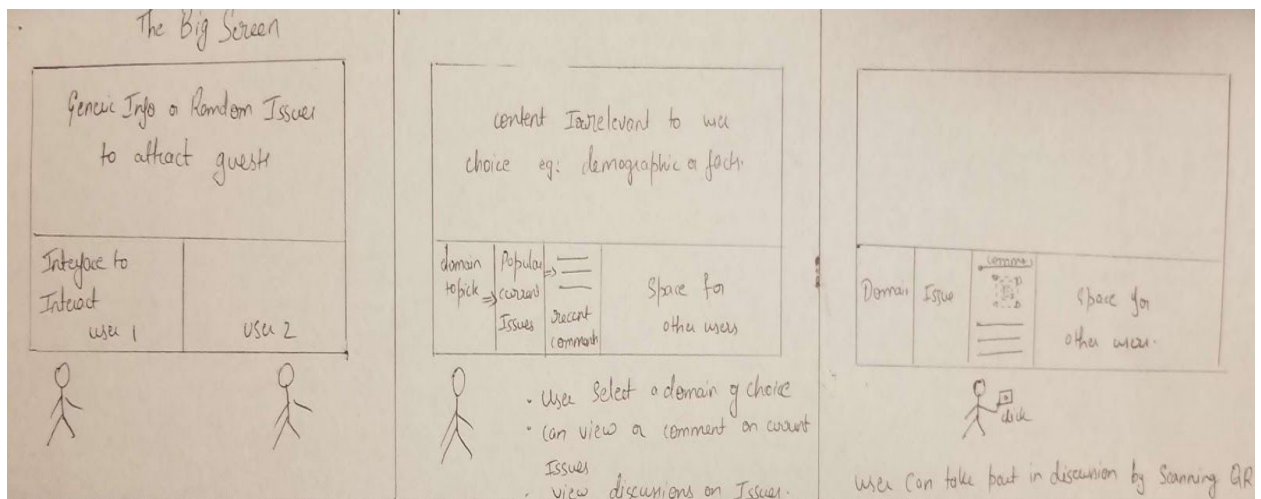 The Big Screen
Generic Info or Random Issues
to attract guests
Interface to
Interact
user 1
user 2
content Irrelevant to user
choice eg: demographic or facts.
domain
to pick
Popular
current
Issues
recent
comments
Space for
other users
• User Select a domain of choice
• can view or comment on current
Issues
• view discussions on Issues.
Domain
Issue
Space for
other users.
click
user can take part in discussion by Scanning QR